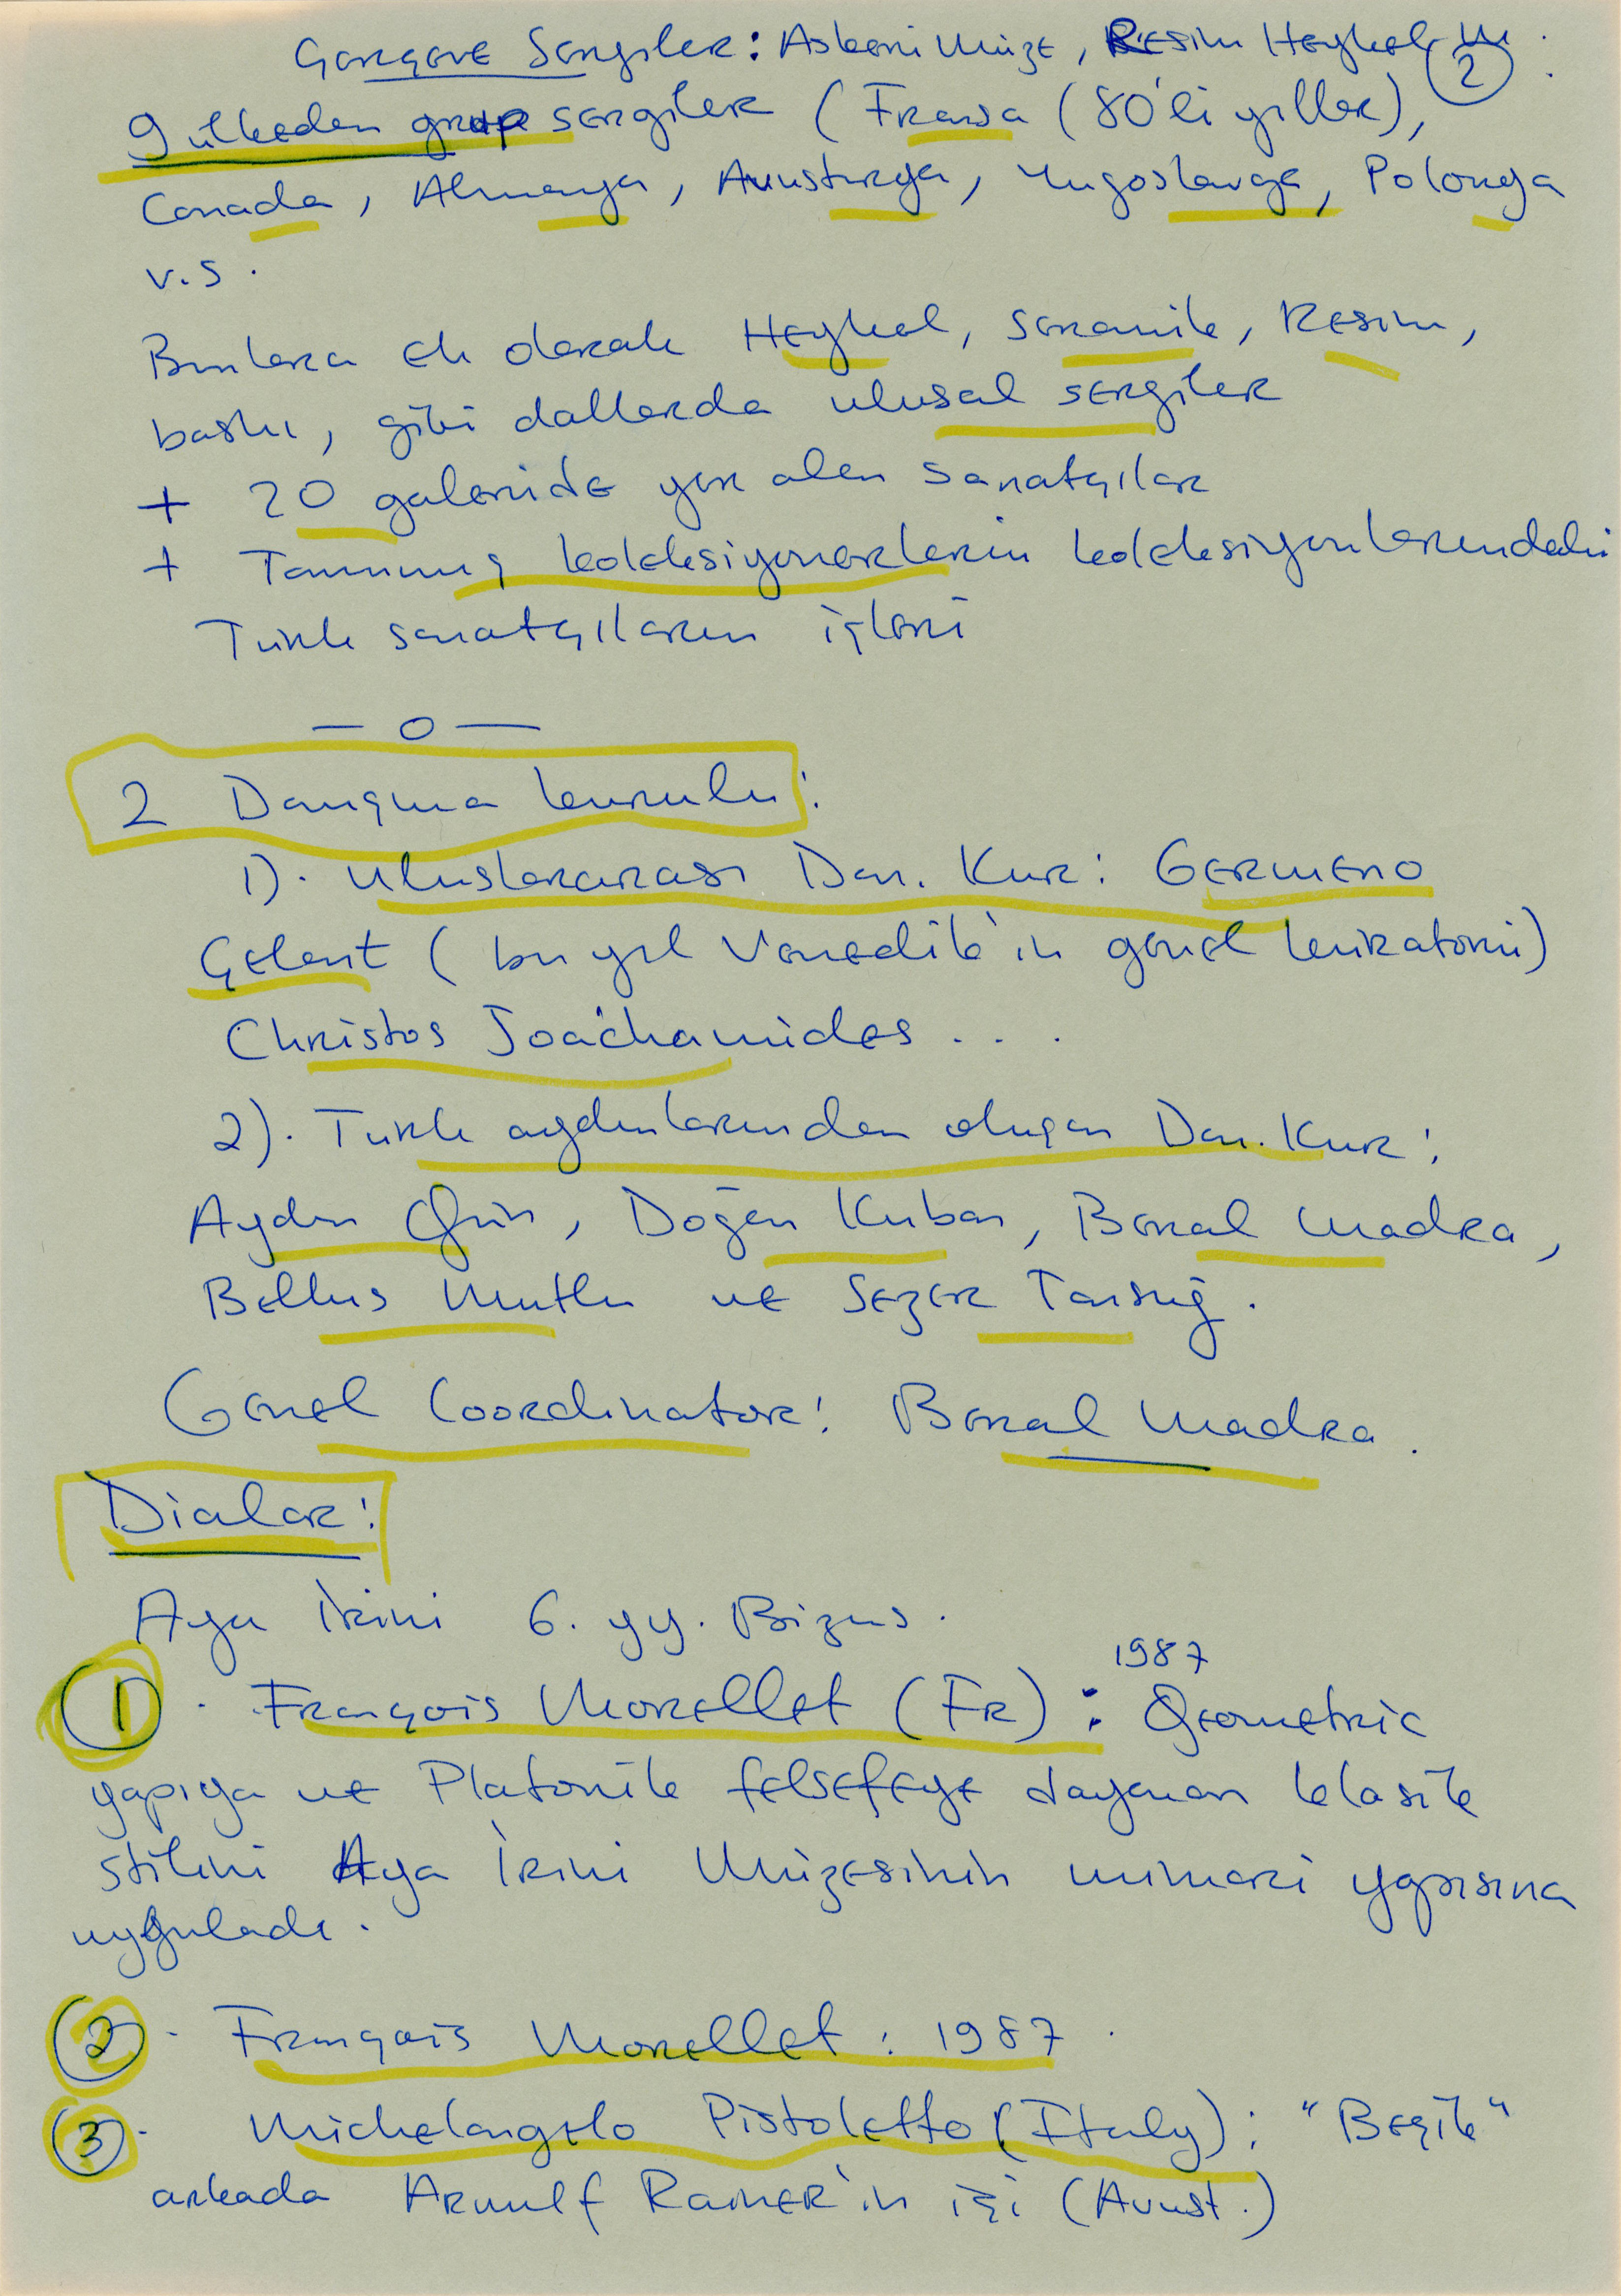 Çerçeve Sergiler: Askeri Müze, Resim Heykel M.
2
9 ülkeden grup sergiler (Fransa (80'li yıllar),
Canada, Almanya, Avusturya, Yugoslavya, Polonya
v.s.
Bunlara ek olarak Heykel, seramik, Resim,
baskı, gibi dallarda ulusal sergiler
+ 20 galeride yer alan sanatçılar
+ Tanınmış kolleksiyonerlerin kolleksiyonlarındaki
Türk sanatçıların işleri
— o —
2 Danışma kurulu:
1). Uluslararası Dan. Kur: GERMENO
Çelant (bu yıl Venedik'in genel küratörü)
Christos Joachamides ...
2). Türk aydınlarından oluşan Dan. Kur:
Aydın Gün, Doğan Kuban, Beral Madra,
Belkıs Mutlu ve Sezer Tansuğ.
Genel Coordinatör: Beral Madra.
Dialar:
Aya İrini 6. yy. Bizans.
1987
1. François Morellet (Fr): Geometric
yapıya ve Platonik felsefeye dayanan klasik
stilini Aya İrini Müzesinin mimari yapısına
uyguladı.
2. François Morellet: 1987.
3. Michelangelo Pistoletto (Italy): "Beşik"
arkada Arnulf Rainer'in işi (Avust.)